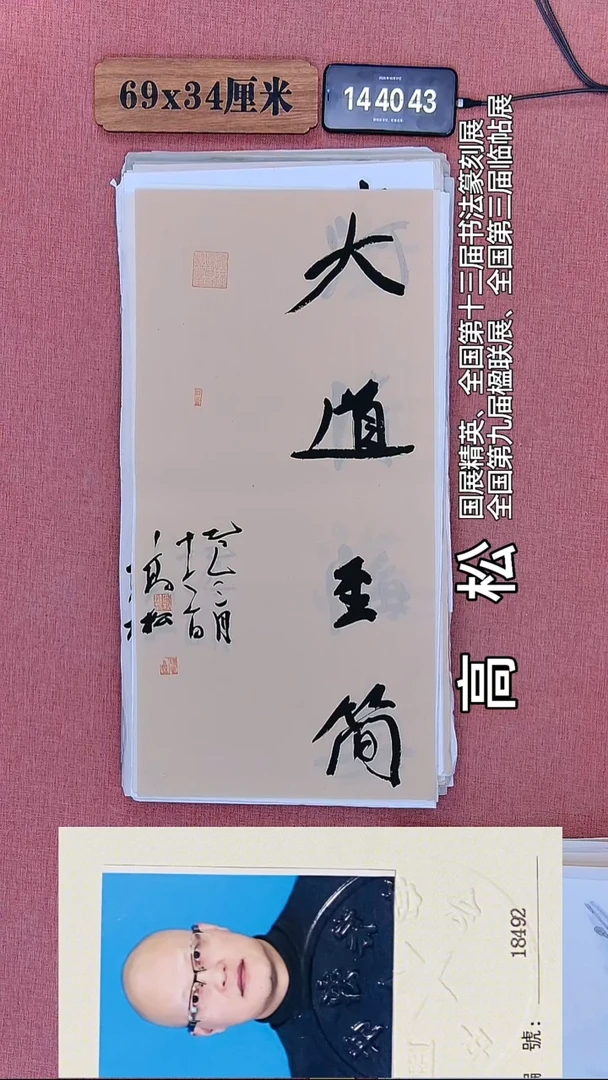 69x34厘米
14 40 43
大道至简
乙巳二月
十七日
高松
高松
国展精英、全国第十三届书法篆刻展
全国第九届楹联展、全国第三届临帖展
18492
號: